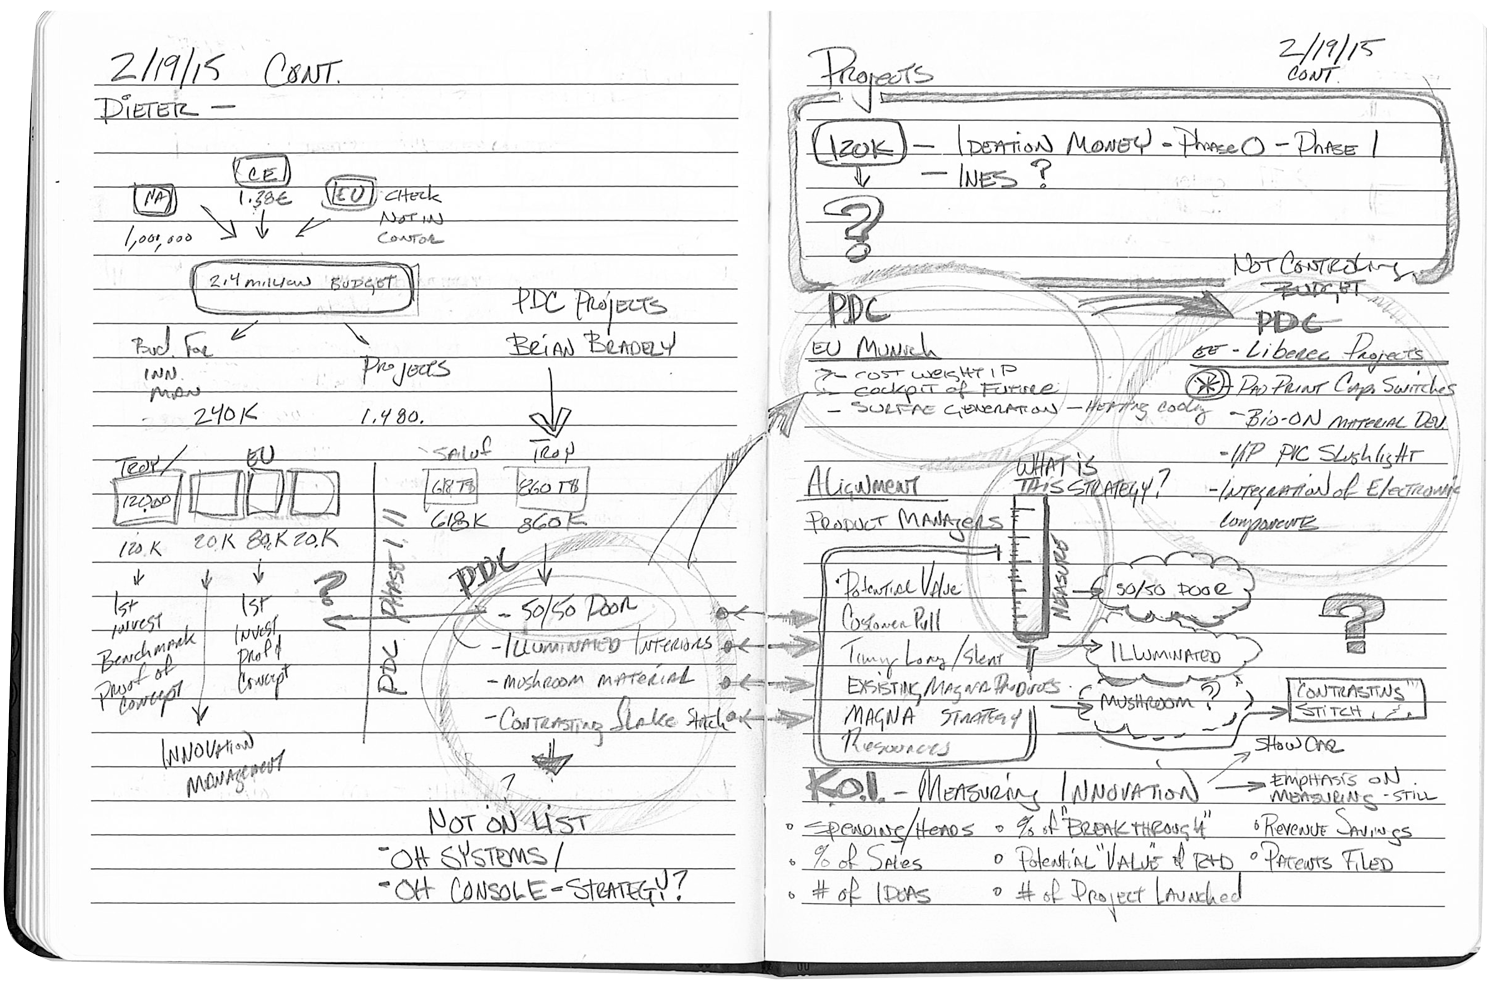 2/19/15 CONT.
DIETER —
CE
NA
1.38€
EU
CHECK
NOT IN
CONTOR
1,000,000
2.4 million BUDGET
Bud. For
INN.
MAN
240K
Projects
1.480.
PDC Projects
BRIAN BRADELY
TROY/
EU
120.00
120.K
20.K
80.K
20.K
1st
Invest
Benchmark
Proof of
Concept
1st
Invest
Prof
Concept
?
INNOVATION
MANAGEMENT
PDC PHASE I, II
618TB
618K
TROY
860TB
860K
PDC
- 50/50 DOOR
- ILLUMINATED INTERIORS
- MUSHROOM MATERIAL
- CONTRASTING Stitch
?
NOT ON LIST
- OH SYSTEMS/
- OH CONSOLE - STRATEGY?
2/19/15
CONT.
Projects
120K — IDEATION MONEY - Phase 0 - Phase 1
— INES ?
?
NOT CONTROLING
BUDGET
PDC
EU Munich
- COST WEIGHT IP
- COCKPIT of FUTURE
- SURFAE GENERATION - HEATING COOLING
PDC
EE - Liberec Projects
* - PAD PRINT CAPS SWITCHES
- Bio-ON MATERIAL DEV.
- PVC Slushlight
- INTEGRATION of Electronic
Components
Alignment
PRODUCT MANAGERS
WHAT IS
THIS STRATEGY?
MEASURE
• Potential Value
Customer Pull
Timing Long/Short
EXSISTING MAGNA PRODUCTS
MAGNA STRATEGY
RESOURCES
50/50 DOOR
ILLUMINATED
MUSHROOM ?
?
"CONTRASTING"
STITCH
SHOW CAR
K.O.I. - MEASURING INNOVATION
EMPHASIS ON
MEASURING - STILL
° SPENDING/HEADS ° % of "BREAKTHROUGH" ° REVENUE SAVINGS
° % of SALES ° Potential "VALUE" of R+D ° PATENTS FILED
° # of IDEAS ° # of PROJECT LAUNCHED